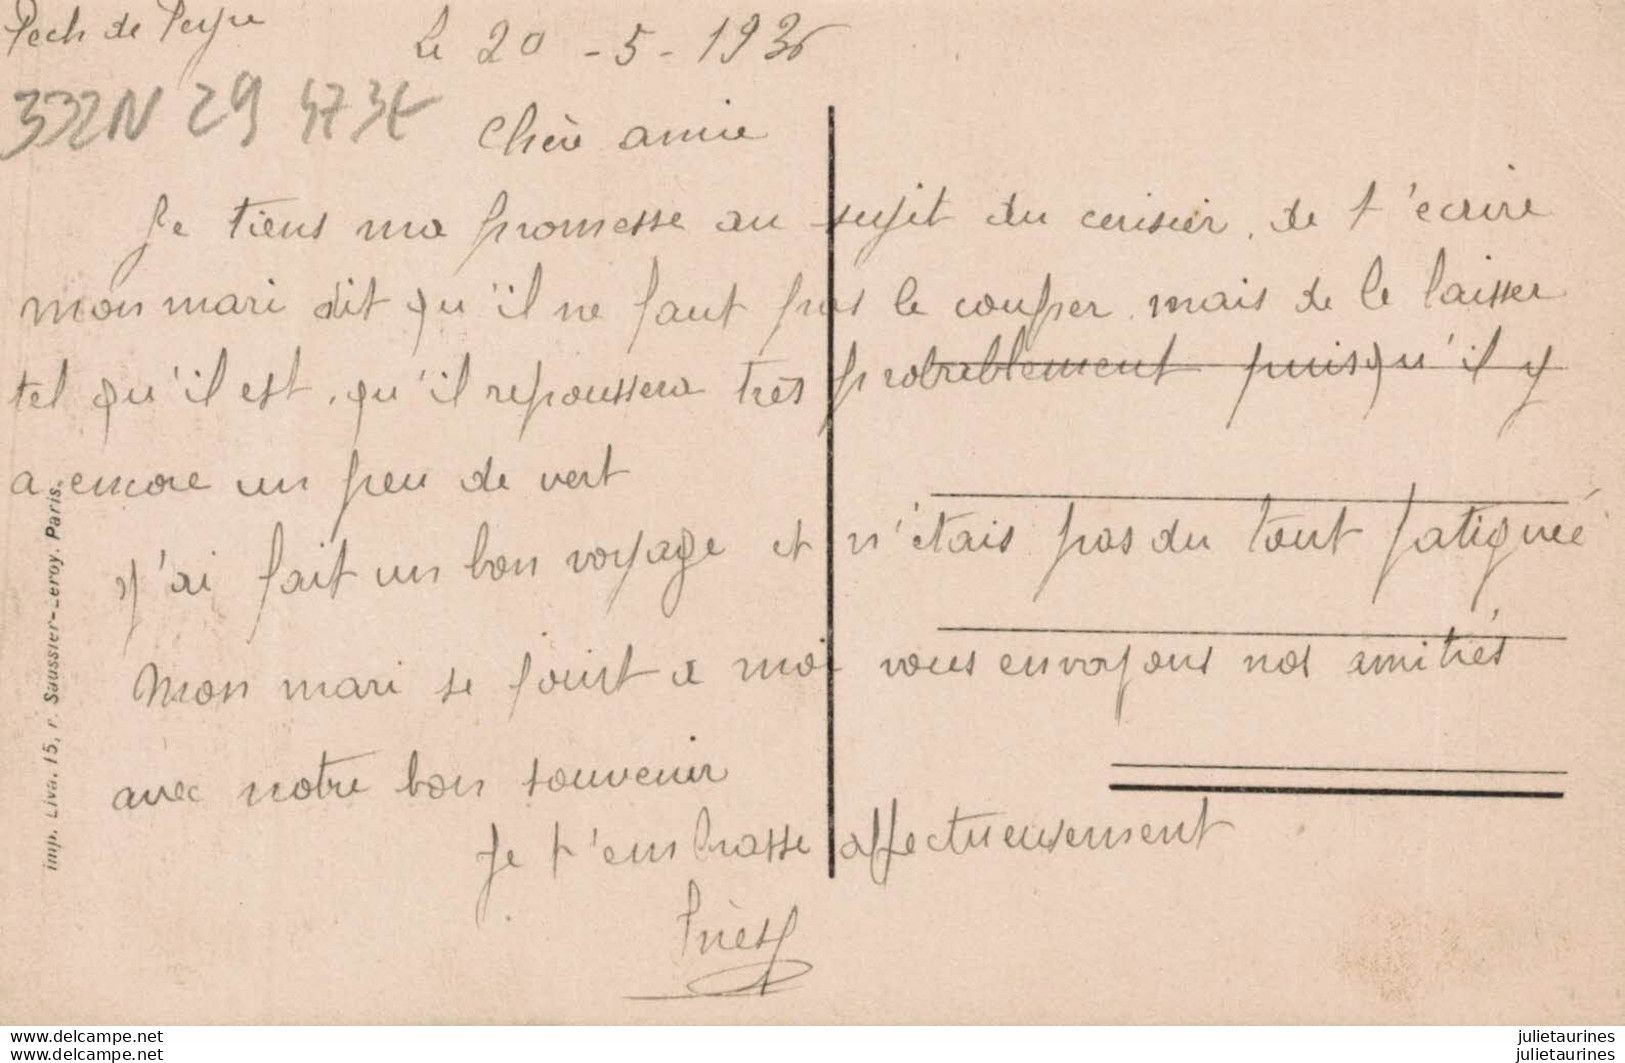 Pech de Peyre
Le 20 - 5 - 1936
332N 29
Chère amie
Je tiens ma promesse au sujet du cerisier, de t'ecrire
mon mari dit qu'il ne faut pas le couper, mais de le laisser
tel qu'il est, qu'il repoussera très probablement puisqu'il y
a encore un peu de vert
j'ai fait un bon voyage et n'étais pas du tout fatiguée
Mon mari se joint a moi vous envoyons nos amitiés
avec notre bon souvenir
Je t'embrasse affectueusement
Imp. Liva. 15, r. Saussier-Leroy. Paris.
julietaurines.com
julietaurines.com
julietaurines
julietaurines